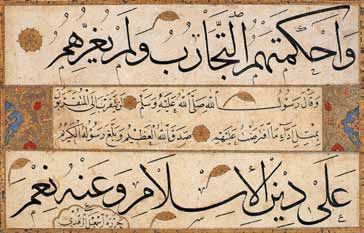 واحكمتهم التجارب ولم يغرهم
وقال رسول الله صلى الله عليه وسلم لن يتقرب الي المتقربون
بمثل اداء ما افترضت عليهم صدق الله العظيم وبلغ رسوله الكريم
على دين الاسلام وعنه نعم